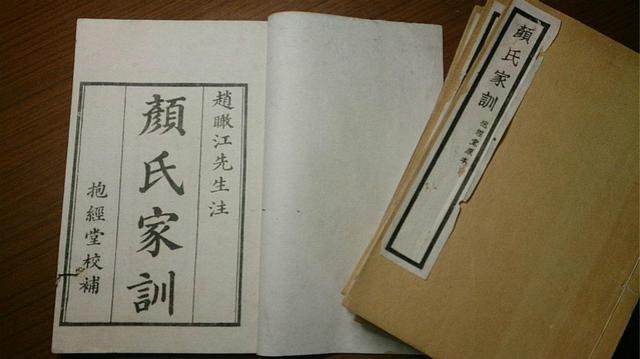 趙瞰江先生注
顏氏家訓
抱經堂校補
顏氏家訓
抱經堂原本